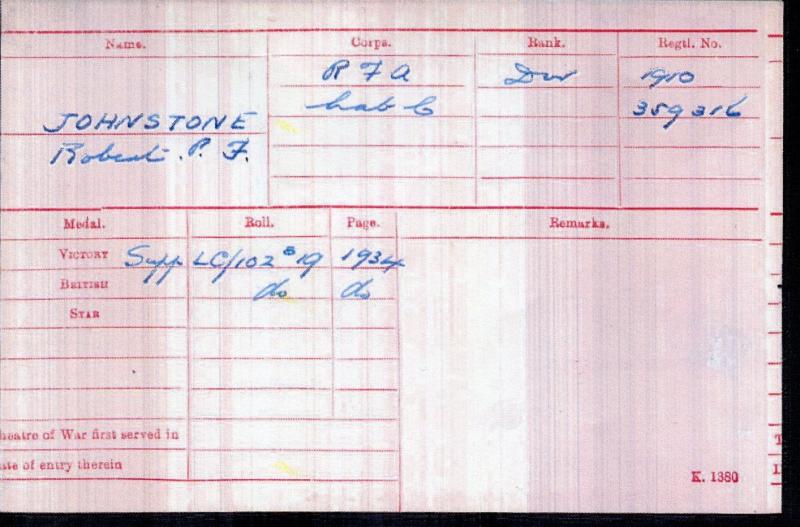 Name. Corps. Rank. Regtl. No.
R F A Dvr 1910
Lab C 359316
JOHNSTONE
Robert. P. F.
Medal. Roll. Page. Remarks.
VICTORY Supp LC/102 B 19 1934
BRITISH do do
STAR
heatre of War first served in
ate of entry therein
K. 1380